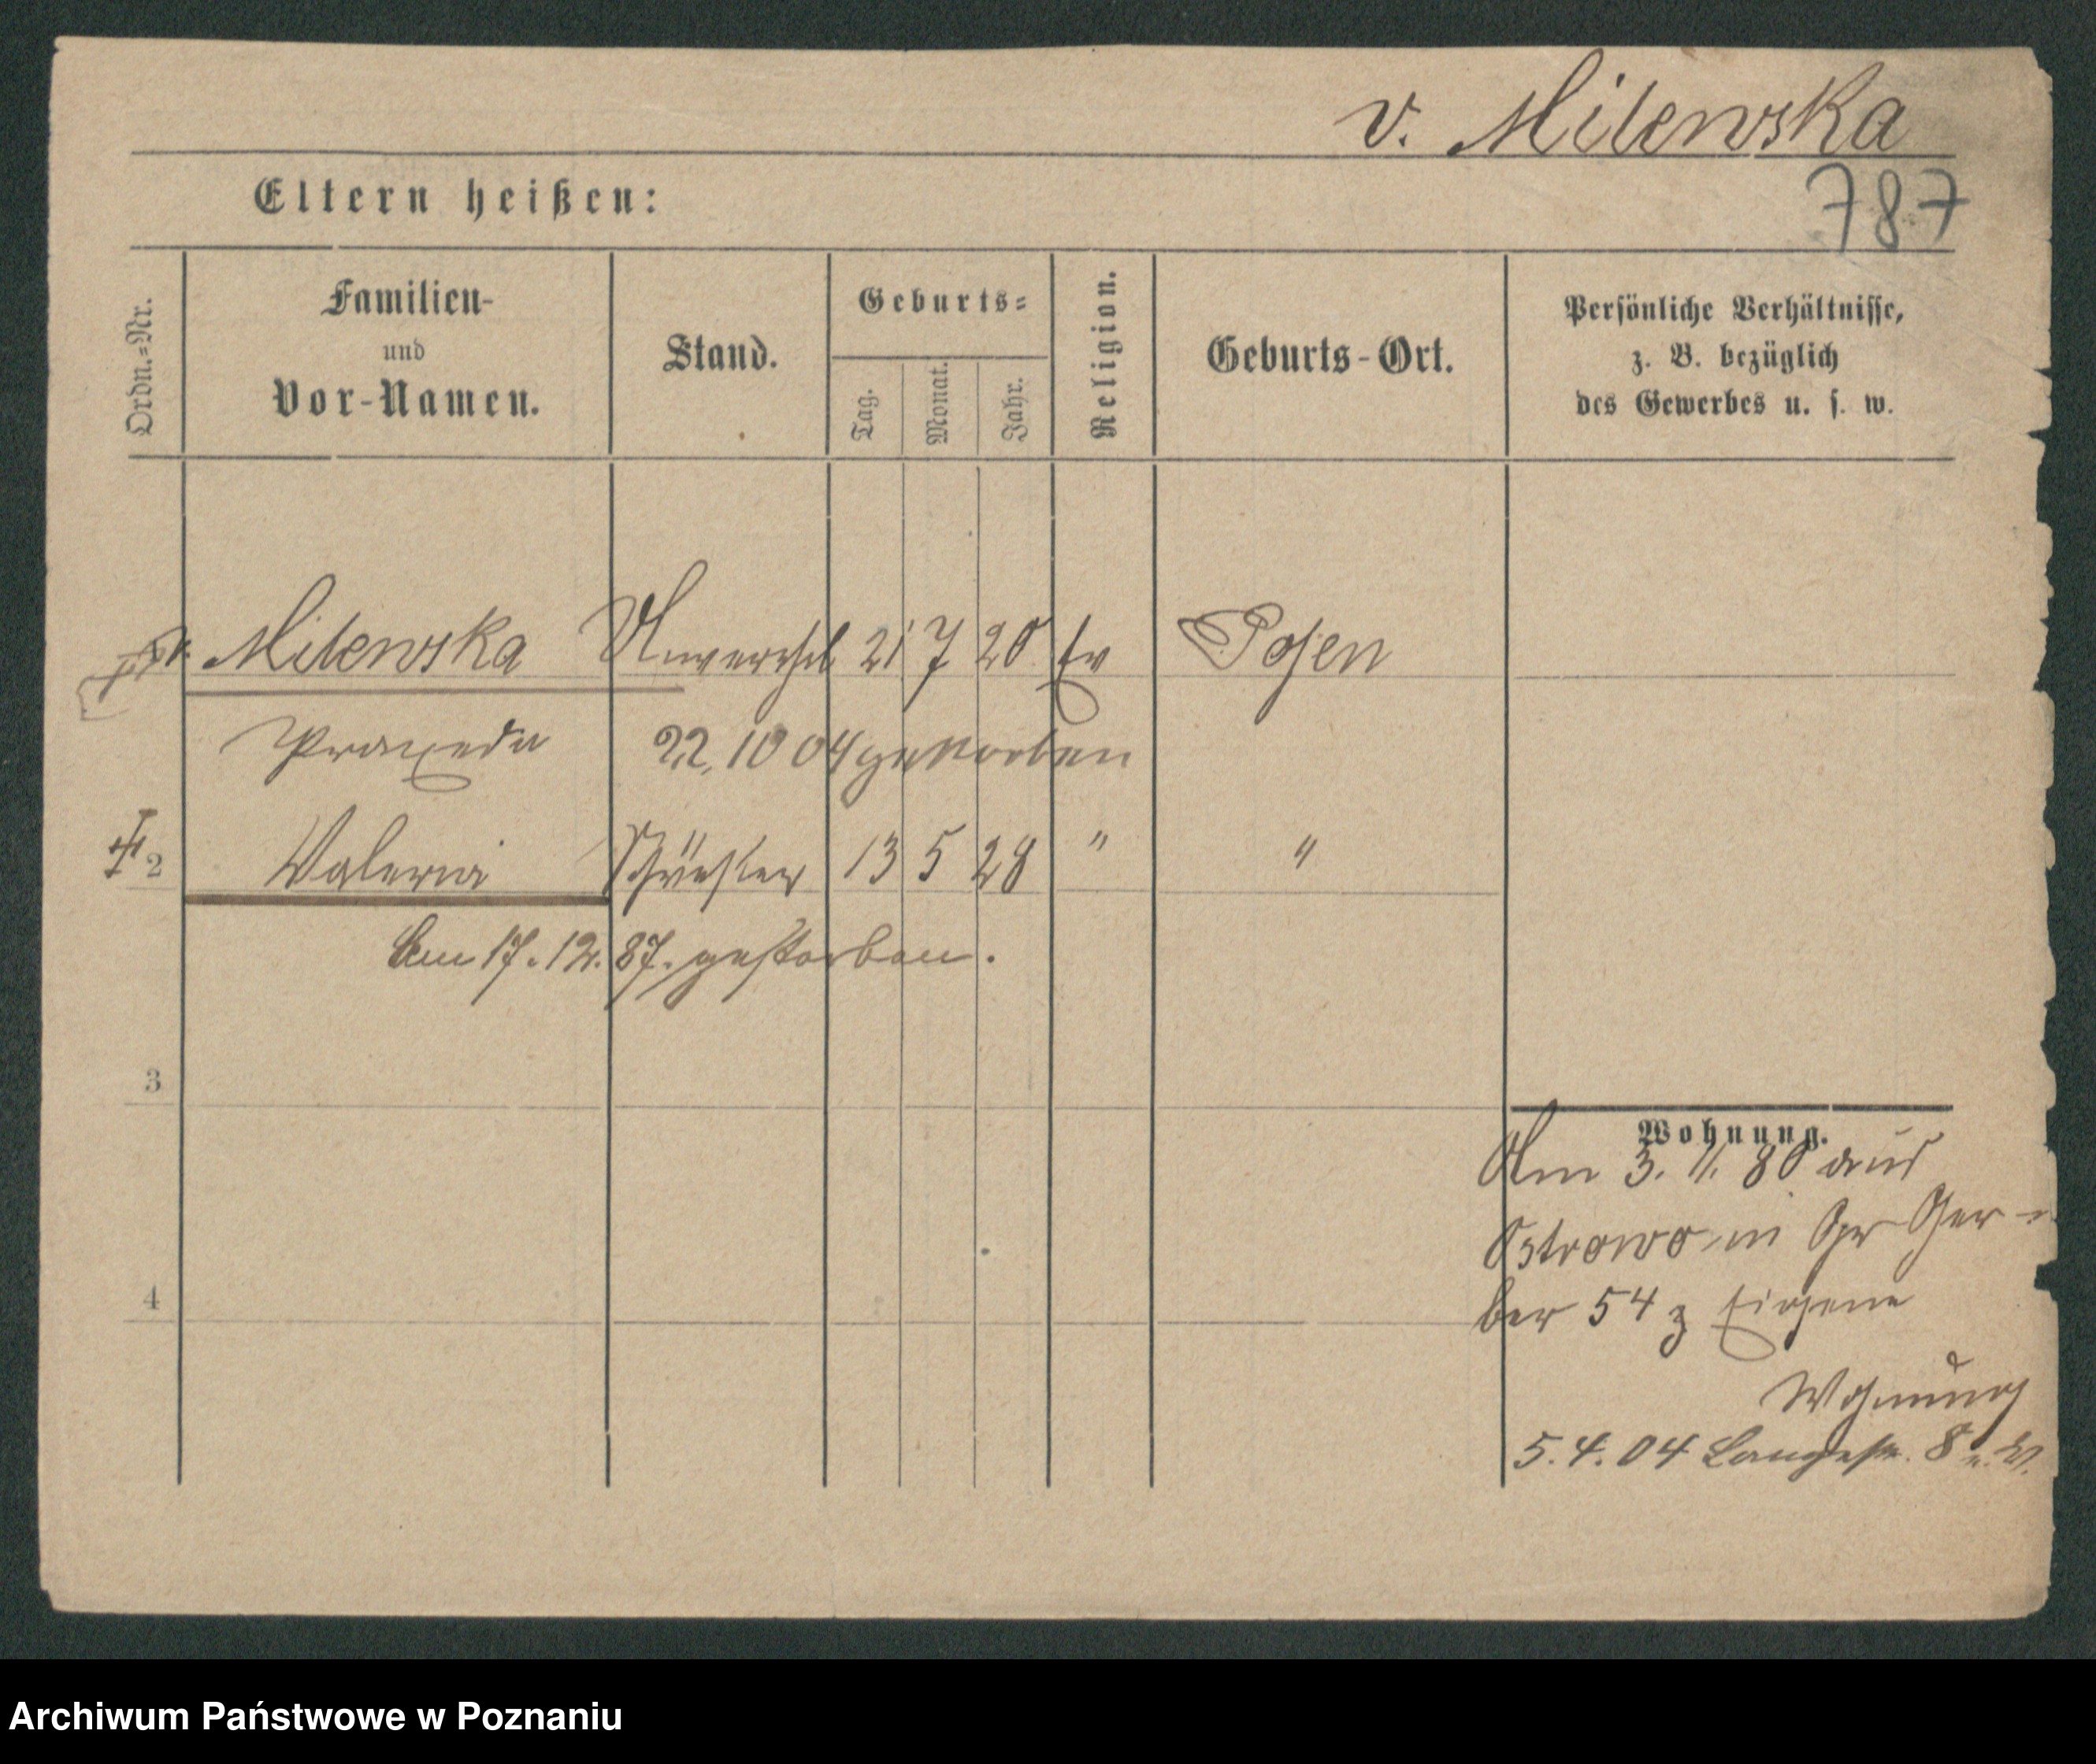 v. Milewska
787
Eltern heißen:
Ordn.=Nr.
Familien-
und
Vor-Namen.
Stand.
Geburts=
Tag.
Monat.
Jahr.
Religion.
Geburts-Ort.
Persönliche Verhältnisse,
z. B. bezüglich
des Gewerbes u. s. w.
v. Milewska Unverehel 21 7 20 Ev Posen
Praxeda 22. 10 04 gestorben
2 Valeria Schwester 13 5 28 " "
Am 17. 12. 87. gestorben.
3
Wohnung.
Am 3. 11. 80 aus
Ostrowo in Gr Ger-
ber 54 z Eigene
4
Wohnung
5. 4. 04 Langestr. 8 e. W.
Archiwum Państwowe w Poznaniu